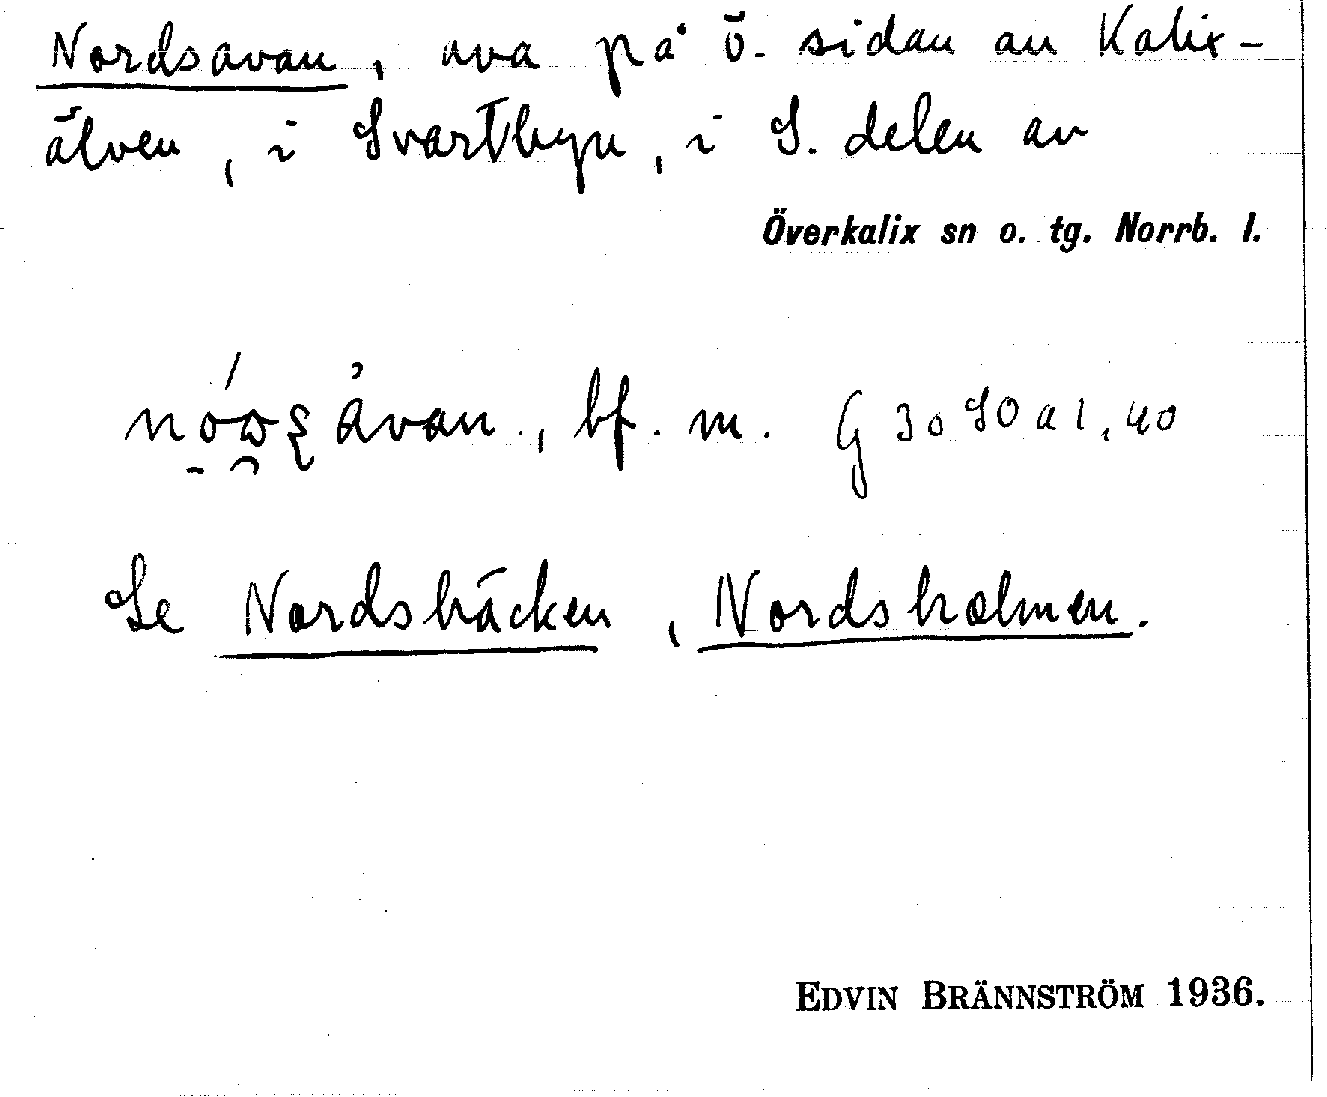 Nordsavan, ava på ö. sidan av Kalix-
älven, i Svartbyn, i S. delen av
Överkalix sn o. tg. Norrb. l.
åvan., bf. m. G 30 SO a 1, 40
Se Nordsbäcken, Nordsholmen.
EDVIN BRÄNNSTRÖM 1936.